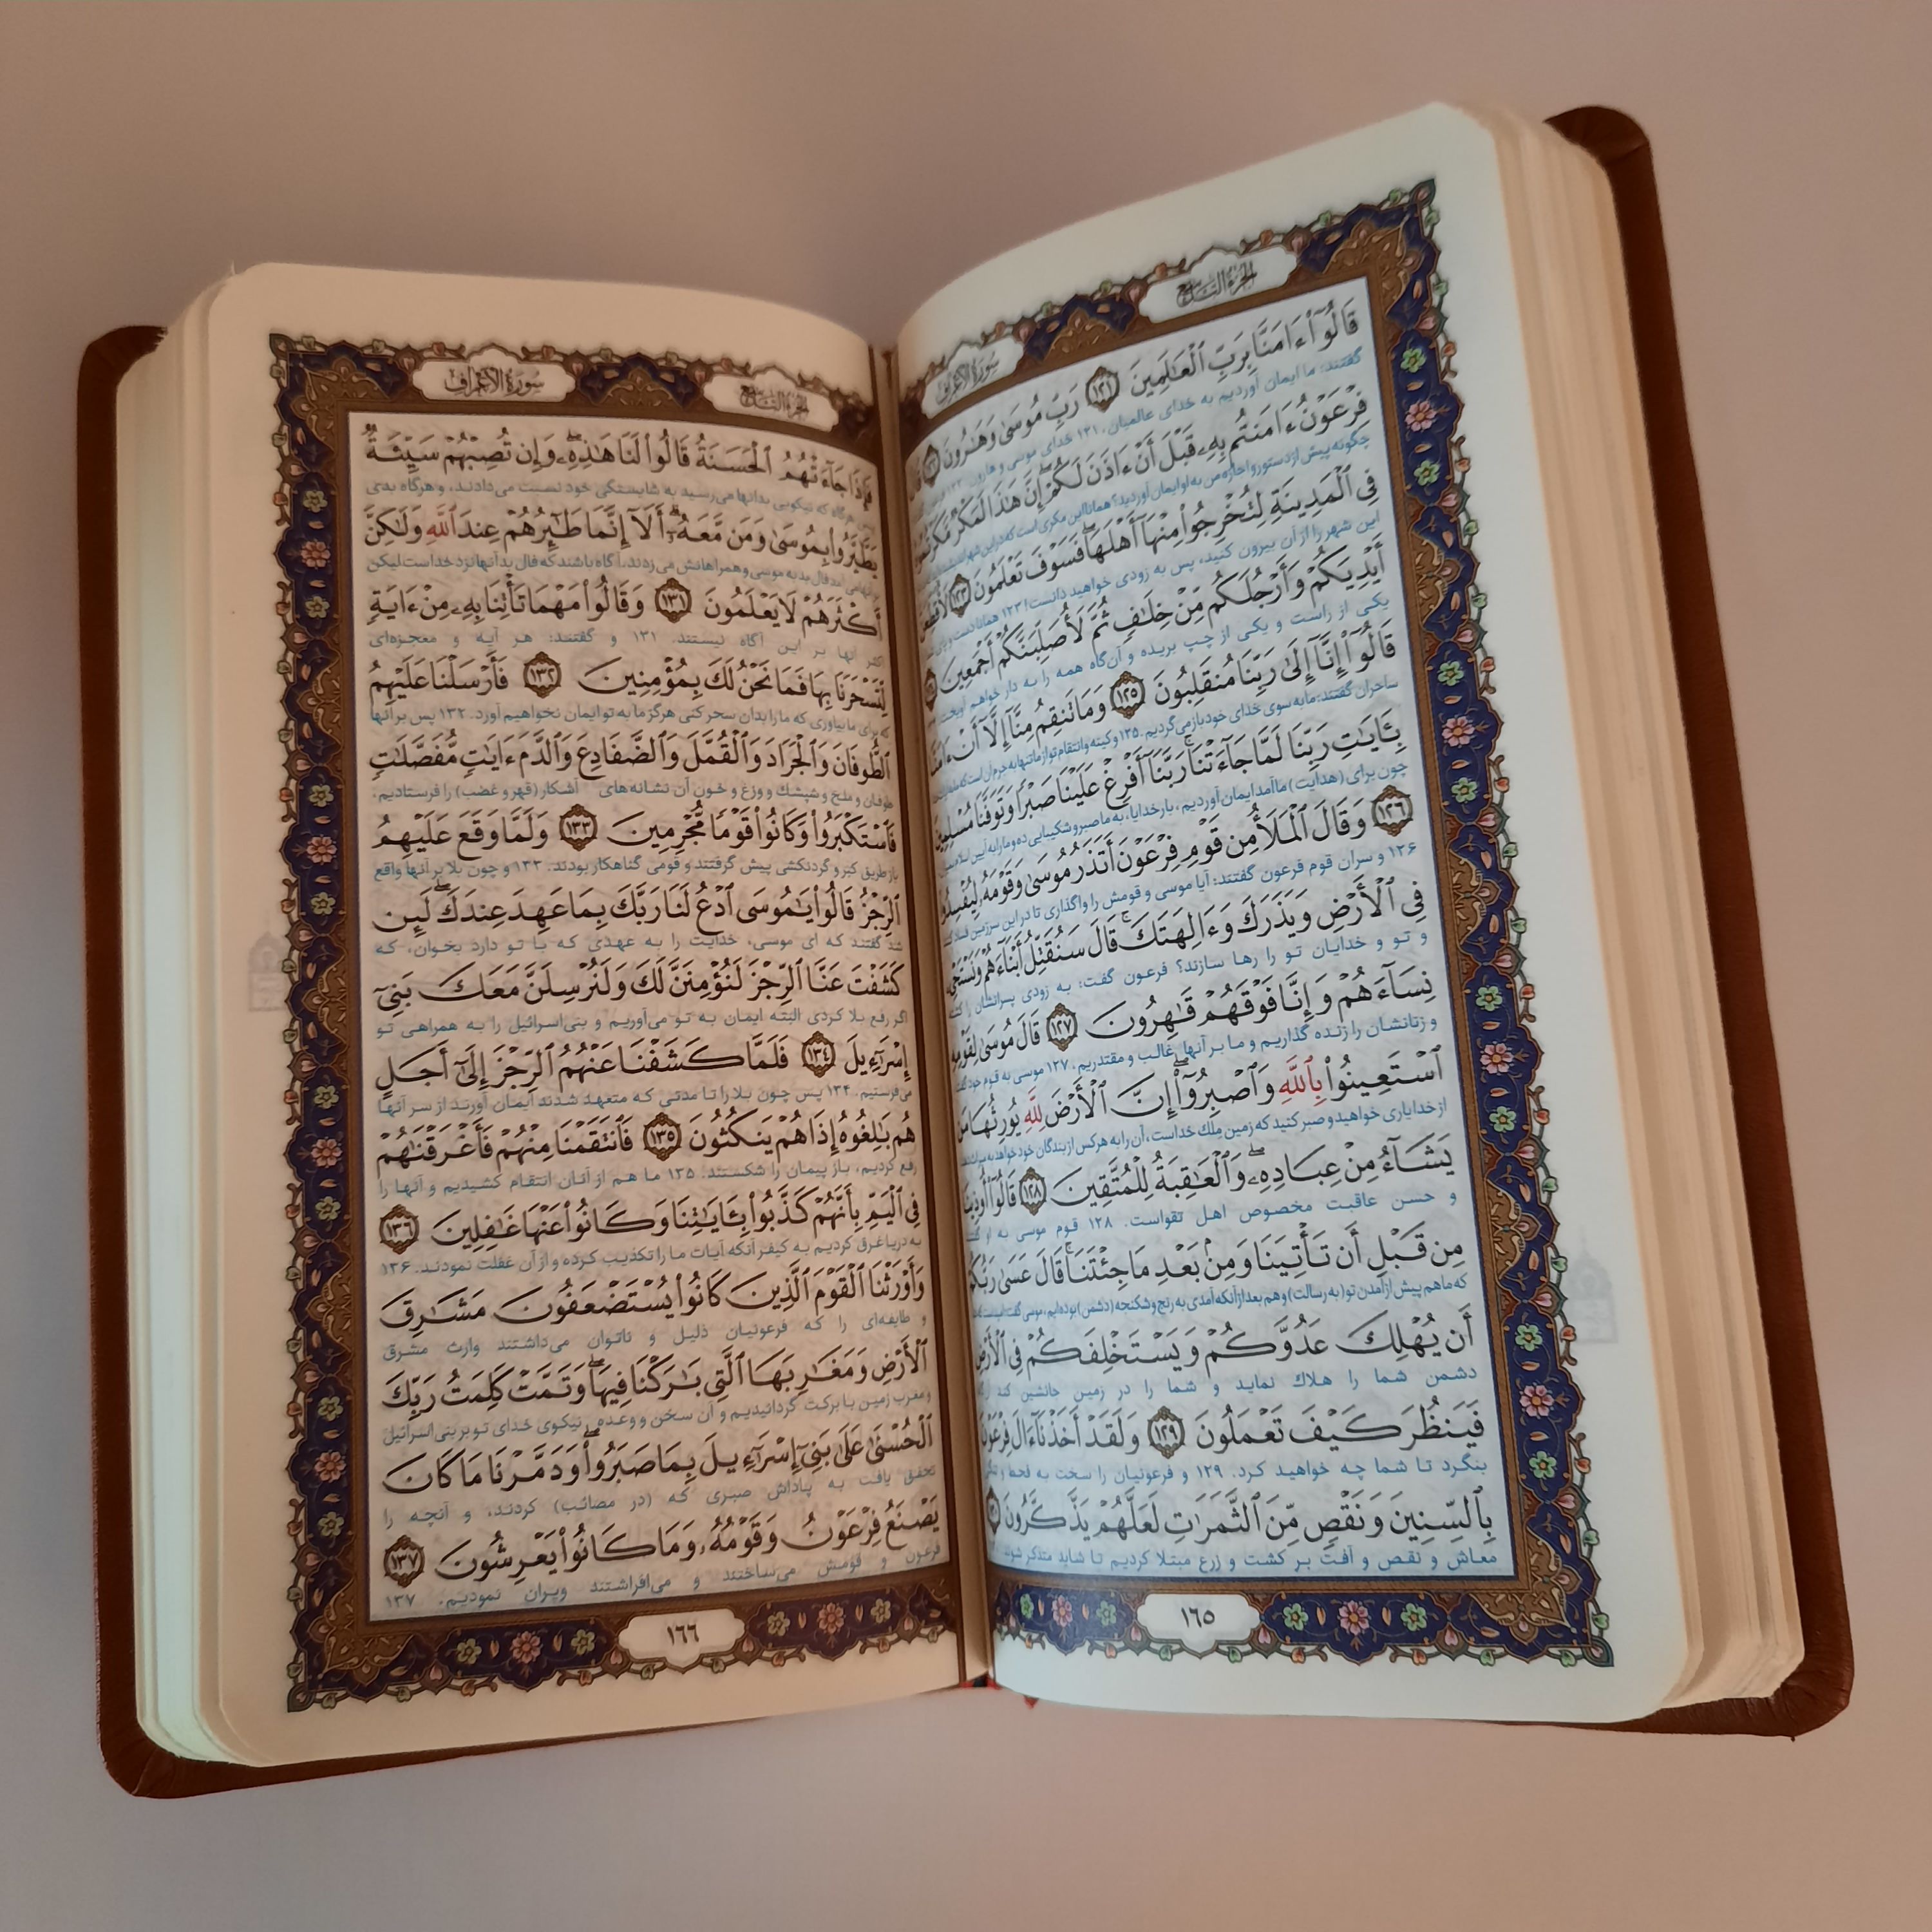 الجزء التاسع
سورة الأعراف
قَالُوٓا۟ ءَامَنَّا بِرَبِّ ٱلْعَٰلَمِينَ ١٢١ رَبِّ مُوسَىٰ وَهَٰرُونَ ١٢٢ قَالَ
گفتند: ما ایمان آوردیم به خدای عالمیان. ۱۲۱ خدای موسی و هارون. ۱۲۲
فِرْعَوْنُ ءَامَنتُم بِهِۦ قَبْلَ أَنْ ءَاذَنَ لَكُمْ إِنَّ هَٰذَا لَمَكْرٌ مَّكَرْتُمُوهُ
چگونه پیش از دستور و اجازه من به او ایمان آوردید؟ همانا این مکری است که در این شهر
فِى ٱلْمَدِينَةِ لِتُخْرِجُوا۟ مِنْهَآ أَهْلَهَا فَسَوْفَ تَعْلَمُونَ ١٢٣ لَأُقَطِّعَنَّ
این شهر را از آن بیرون کنید، پس به زودی خواهید دانست! ۱۲۳ همانا دست و پای
أَيْدِيَكُمْ وَأَرْجُلَكُم مِّنْ خِلَٰفٍ ثُمَّ لَأُصَلِّبَنَّكُمْ أَجْمَعِينَ
یکی از راست و یکی از چپ بریده و آن‌گاه همه را به دار خواهم آویخت
قَالُوٓا۟ إِنَّآ إِلَىٰ رَبِّنَا مُنقَلِبُونَ ١٢٥ وَمَا تَنقِمُ مِنَّآ إِلَّآ أَنْ ءَامَنَّا
ساحران گفتند: ما به سوی خدای خود باز می‌گردیم. ۱۲۵ و کینه و انتقام تو از ما تنها به جرم آن است که ما
بِـَٔايَٰتِ رَبِّنَا لَمَّا جَآءَتْنَا رَبَّنَآ أَفْرِغْ عَلَيْنَا صَبْرًا وَتَوَفَّنَا مُسْلِمِينَ
چون برای (هدایت) ما آمد ایمان آوردیم، بار خدایا، به ما صبر و شکیبایی ده و ما را به آیین اسلام
١٢٦ وَقَالَ ٱلْمَلَأُ مِن قَوْمِ فِرْعَوْنَ أَتَذَرُ مُوسَىٰ وَقَوْمَهُۥ لِيُفْسِدُوا۟
۱۲۶ و سران قوم فرعون گفتند: آیا موسی و قومش را واگذاری تا در این سرزمین فساد کنند
فِى ٱلْأَرْضِ وَيَذَرَكَ وَءَالِهَتَكَ قَالَ سَنُقَتِّلُ أَبْنَآءَهُمْ وَنَسْتَحْىِۦ
و تو و خدایان تو را رها سازند؟ فرعون گفت: به زودی پسرانشان را کشته
نِسَآءَهُمْ وَإِنَّا فَوْقَهُمْ قَٰهِرُونَ ١٢٧ قَالَ مُوسَىٰ لِقَوْمِهِ
و زنانشان را زنده گذاریم و ما بر آنها غالب و مقتدریم. ۱۲۷ موسی به قوم خود گفت
ٱسْتَعِينُوا۟ بِٱللَّهِ وَٱصْبِرُوٓا۟ إِنَّ ٱلْأَرْضَ لِلَّهِ يُورِثُهَا مَن
از خدا یاری خواهید و صبر کنید که زمین ملک خداست، آن را به هر کس از بندگان خود خواهد به میراث
يَشَآءُ مِنْ عِبَادِهِۦ وَٱلْعَٰقِبَةُ لِلْمُتَّقِينَ ١٢٨ قَالُوٓا۟ أُوذِينَا
و حسن عاقبت مخصوص اهل تقواست. ۱۲۸ قوم موسی به او گفتند
مِن قَبْلِ أَن تَأْتِيَنَا وَمِنۢ بَعْدِ مَا جِئْتَنَا قَالَ عَسَىٰ رَبُّكُمْ
که ما هم پیش از آمدن تو (به رسالت) و هم بعد از آنکه آمدی به رنج و شکنجه (دشمن) بوده‌ایم، موسی گفت
أَن يُهْلِكَ عَدُوَّكُمْ وَيَسْتَخْلِفَكُمْ فِى ٱلْأَرْضِ
دشمن شما را هلاک نماید و شما را در زمین جانشین کند
فَيَنظُرَ كَيْفَ تَعْمَلُونَ ١٢٩ وَلَقَدْ أَخَذْنَآ ءَالَ فِرْعَوْنَ
بنگرد تا شما چه خواهید کرد. ۱۲۹ و فرعونیان را سخت به قحط و تنگی
بِٱلسِّنِينَ وَنَقْصٍ مِّنَ ٱلثَّمَرَٰتِ لَعَلَّهُمْ يَذَّكَّرُونَ
معاش و نقص و آفت بر کشت و زرع مبتلا کردیم تا شاید متذکر شوند
١٦٥
الجزء التاسع
سورة الأعراف
فَإِذَا جَآءَتْهُمُ ٱلْحَسَنَةُ قَالُوا۟ لَنَا هَٰذِهِۦ وَإِن تُصِبْهُمْ سَيِّئَةٌ
هرگاه که نیکویی بدانها می‌رسید به شایستگی خود نسبت می‌دادند، و هرگاه بدی
يَطَّيَّرُوا۟ بِمُوسَىٰ وَمَن مَّعَهُۥٓ أَلَآ إِنَّمَا طَٰٓئِرُهُمْ عِندَ ٱللَّهِ وَلَٰكِنَّ
آمد فال بد به موسی و همراهانش می‌زدند. آگاه باشند که فال بد آنها نزد خداست لیکن
أَكْثَرَهُمْ لَا يَعْلَمُونَ ١٣١ وَقَالُوا۟ مَهْمَا تَأْتِنَا بِهِۦ مِنْ ءَايَةٍ
اکثر آنها بر این آگاه نیستند. ۱۳۱ و گفتند: هر آیه و معجزه‌ای
لِّتَسْحَرَنَا بِهَا فَمَا نَحْنُ لَكَ بِمُؤْمِنِينَ ١٣٢ فَأَرْسَلْنَا عَلَيْهِمُ
که برای ما بیاوری که ما را بدان سحر کنی هرگز ما به تو ایمان نخواهیم آورد. ۱۳۲ پس بر آنها
ٱلطُّوفَانَ وَٱلْجَرَادَ وَٱلْقُمَّلَ وَٱلضَّفَادِعَ وَٱلدَّمَ ءَايَٰتٍ مُّفَصَّلَٰتٍ
طوفان و ملخ و شپشک و وزغ و خون آن نشانه‌های آشکار (قهر و غضب) را فرستادیم،
فَٱسْتَكْبَرُوا۟ وَكَانُوا۟ قَوْمًا مُّجْرِمِينَ ١٣٣ وَلَمَّا وَقَعَ عَلَيْهِمُ
باز طریق کبر و گردنکشی پیش گرفتند و قومی گناهکار بودند. ۱۳۳ و چون بلا بر آنها واقع
ٱلرِّجْزُ قَالُوا۟ يَٰمُوسَى ٱدْعُ لَنَا رَبَّكَ بِمَا عَهِدَ عِندَكَ لَئِن
شد گفتند که ای موسی، خدایت را به عهدی که با تو دارد بخوان، که
كَشَفْتَ عَنَّا ٱلرِّجْزَ لَنُؤْمِنَنَّ لَكَ وَلَنُرْسِلَنَّ مَعَكَ بَنِىٓ
اگر رفع بلا کردی البته ایمان به تو می‌آوریم و بنی‌اسرائیل را به همراهی تو
إِسْرَٰٓءِيلَ ١٣٤ فَلَمَّا كَشَفْنَا عَنْهُمُ ٱلرِّجْزَ إِلَىٰٓ أَجَلٍ
می‌فرستیم. ۱۳۴ پس چون بلا را تا مدتی که متعهد شدند ایمان آورند از سر آنها
هُم بَٰلِغُوهُ إِذَا هُمْ يَنكُثُونَ ١٣٥ فَٱنتَقَمْنَا مِنْهُمْ فَأَغْرَقْنَٰهُمْ
رفع کردیم، باز پیمان را شکستند. ۱۳۵ ما هم از آنان انتقام کشیدیم و آنها را
فِى ٱلْيَمِّ بِأَنَّهُمْ كَذَّبُوا۟ بِـَٔايَٰتِنَا وَكَانُوا۟ عَنْهَا غَٰفِلِينَ ١٣٦
به دریا غرق کردیم به کیفر آنکه آیات ما را تکذیب کرده و از آن غفلت نمودند. ۱۳۶
وَأَوْرَثْنَا ٱلْقَوْمَ ٱلَّذِينَ كَانُوا۟ يُسْتَضْعَفُونَ مَشَٰرِقَ
و طایفه‌ای را که فرعونیان ذلیل و ناتوان می‌داشتند وارث مشرق
ٱلْأَرْضِ وَمَغَٰرِبَهَا ٱلَّتِى بَٰرَكْنَا فِيهَا وَتَمَّتْ كَلِمَتُ رَبِّكَ
و مغرب زمین با برکت گردانیدیم و آن سخن و وعده نیکوی خدای تو بر بنی‌اسرائیل
ٱلْحُسْنَىٰ عَلَىٰ بَنِىٓ إِسْرَٰٓءِيلَ بِمَا صَبَرُوا۟ وَدَمَّرْنَا مَا كَانَ
تحقق یافت به پاداش صبری که (در مصائب) کردند، و آنچه را
يَصْنَعُ فِرْعَوْنُ وَقَوْمُهُۥ وَمَا كَانُوا۟ يَعْرِشُونَ ١٣٧
فرعون و قومش می‌ساختند و می‌افراشتند ویران نمودیم. ۱۳۷
١٦٦